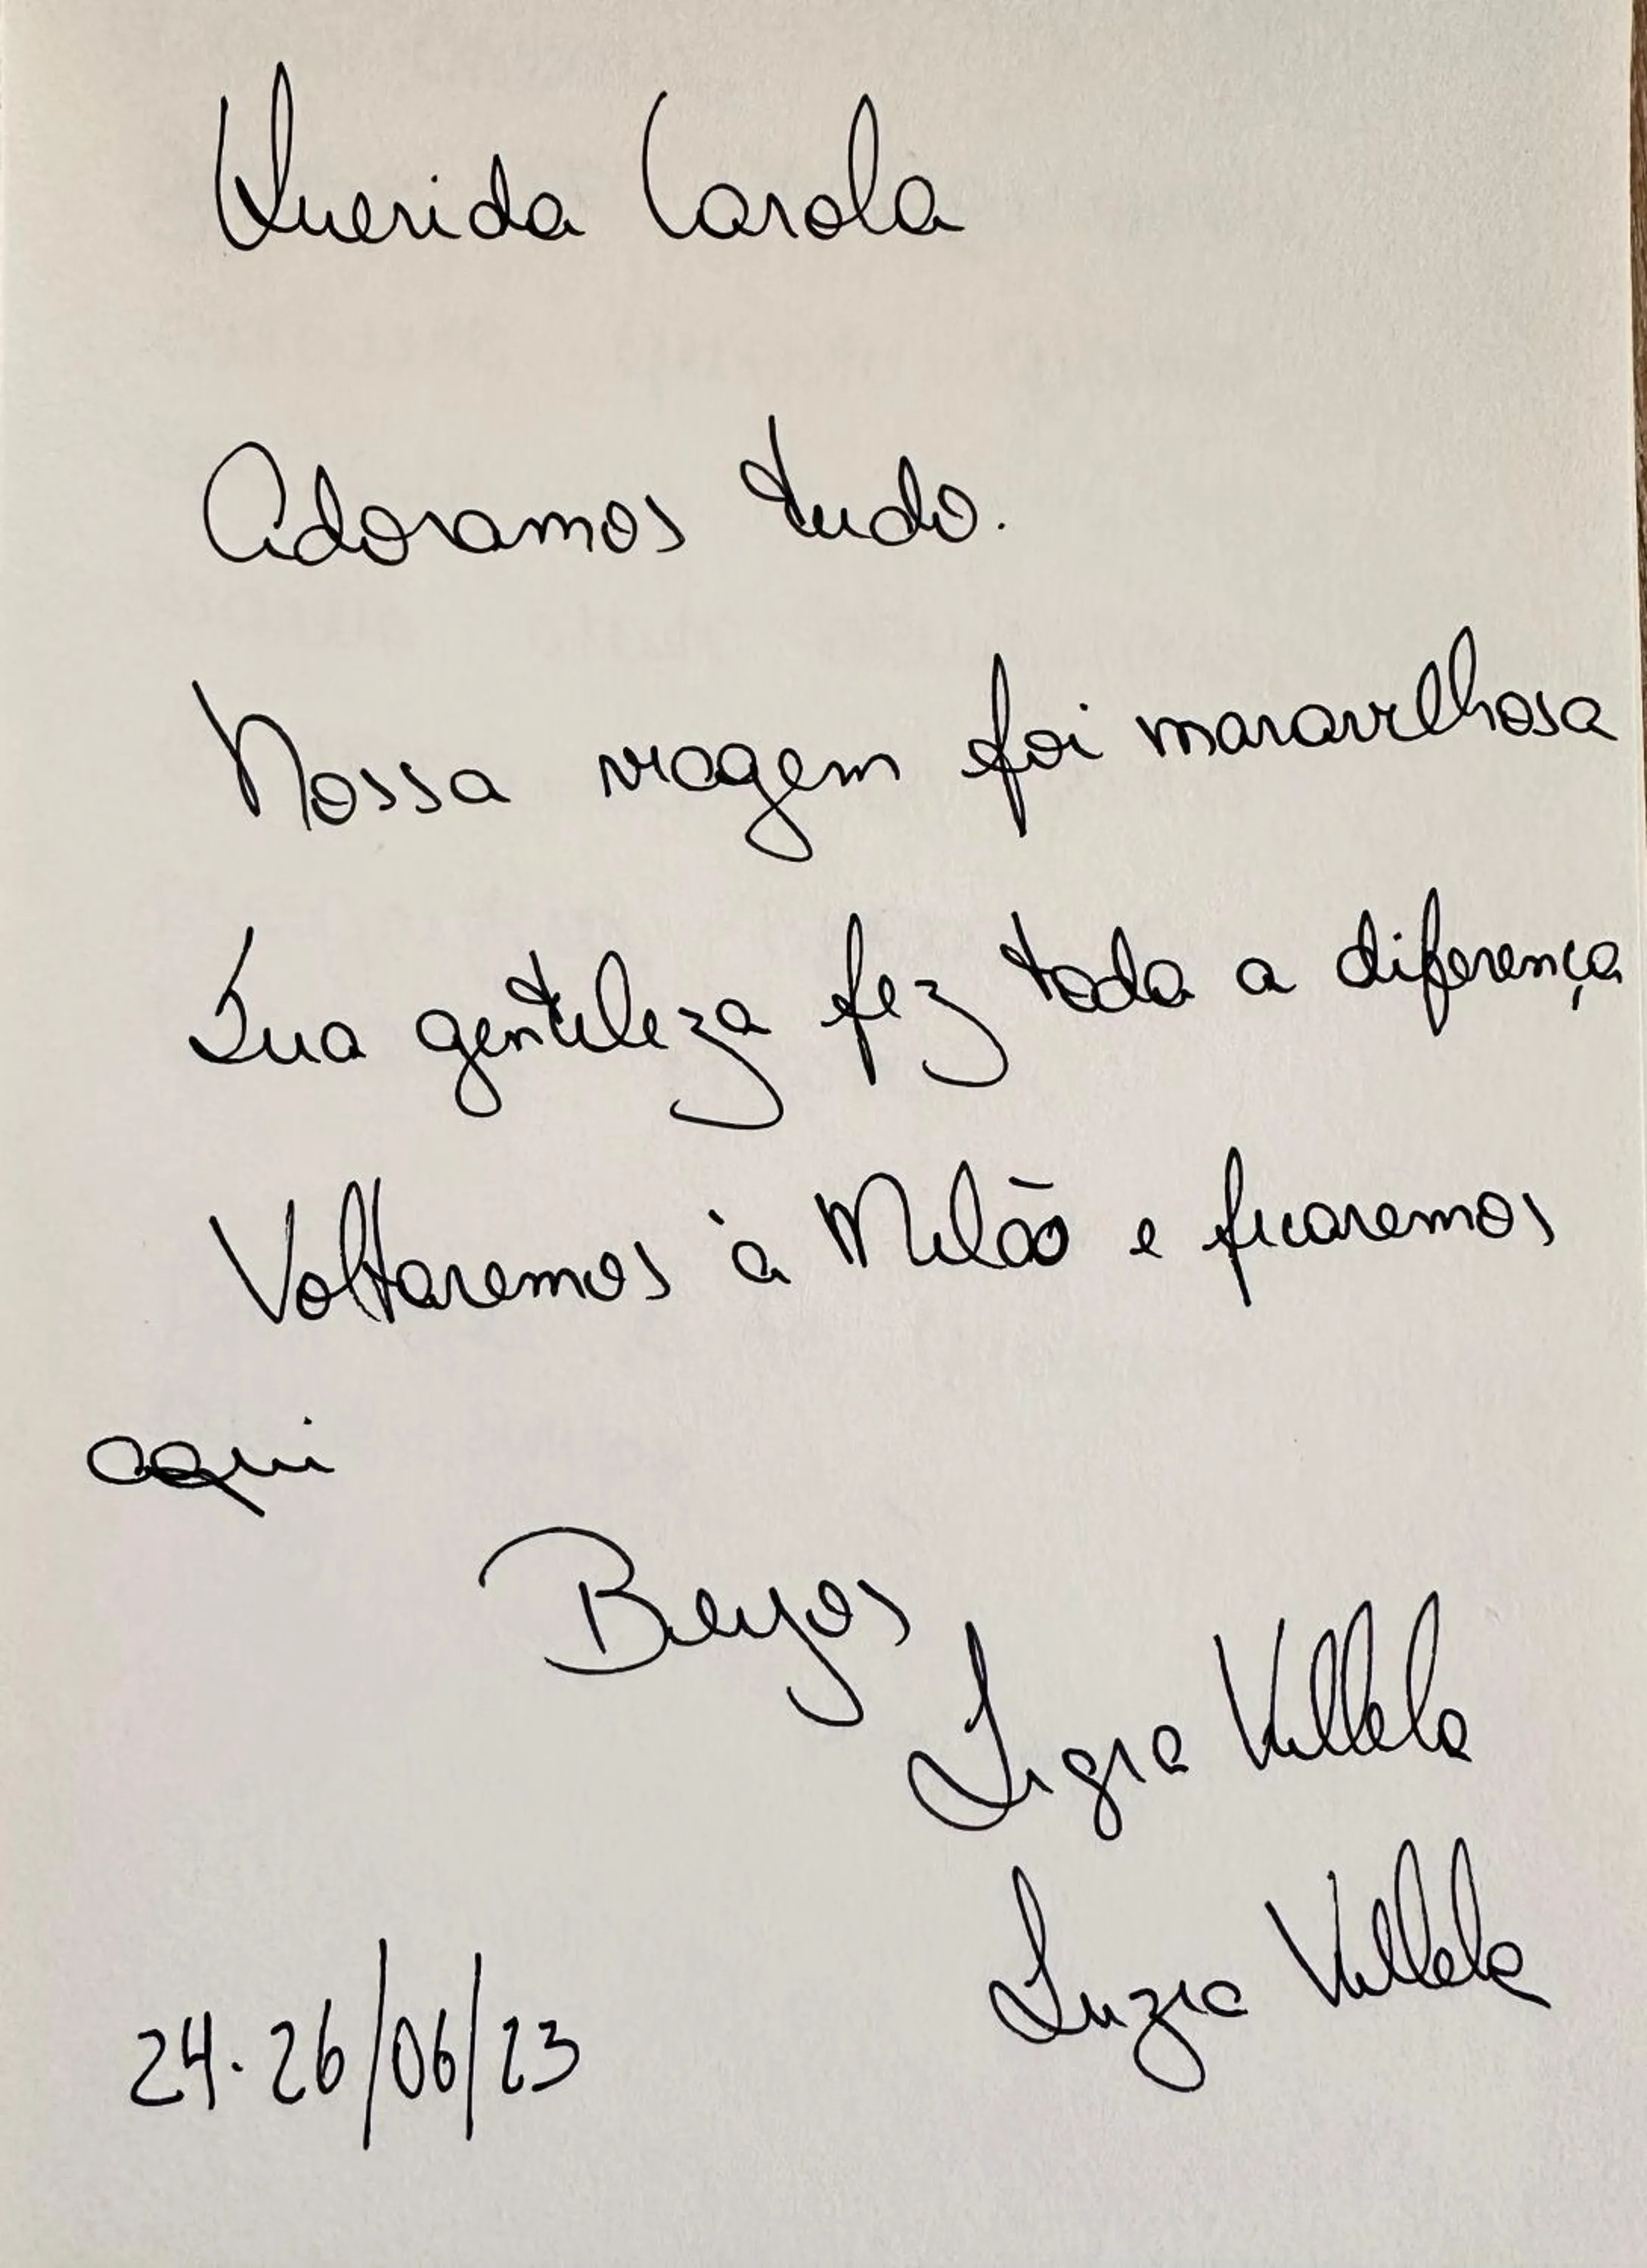 Querida Carola
Adoramos tudo.
Nossa viagem foi maravilhosa
Sua gentileza fez toda a diferença
Voltaremos à Milão e ficaremos
aqui
Beijos
Ligia Villela
Luzia Villela
24.26/06/23